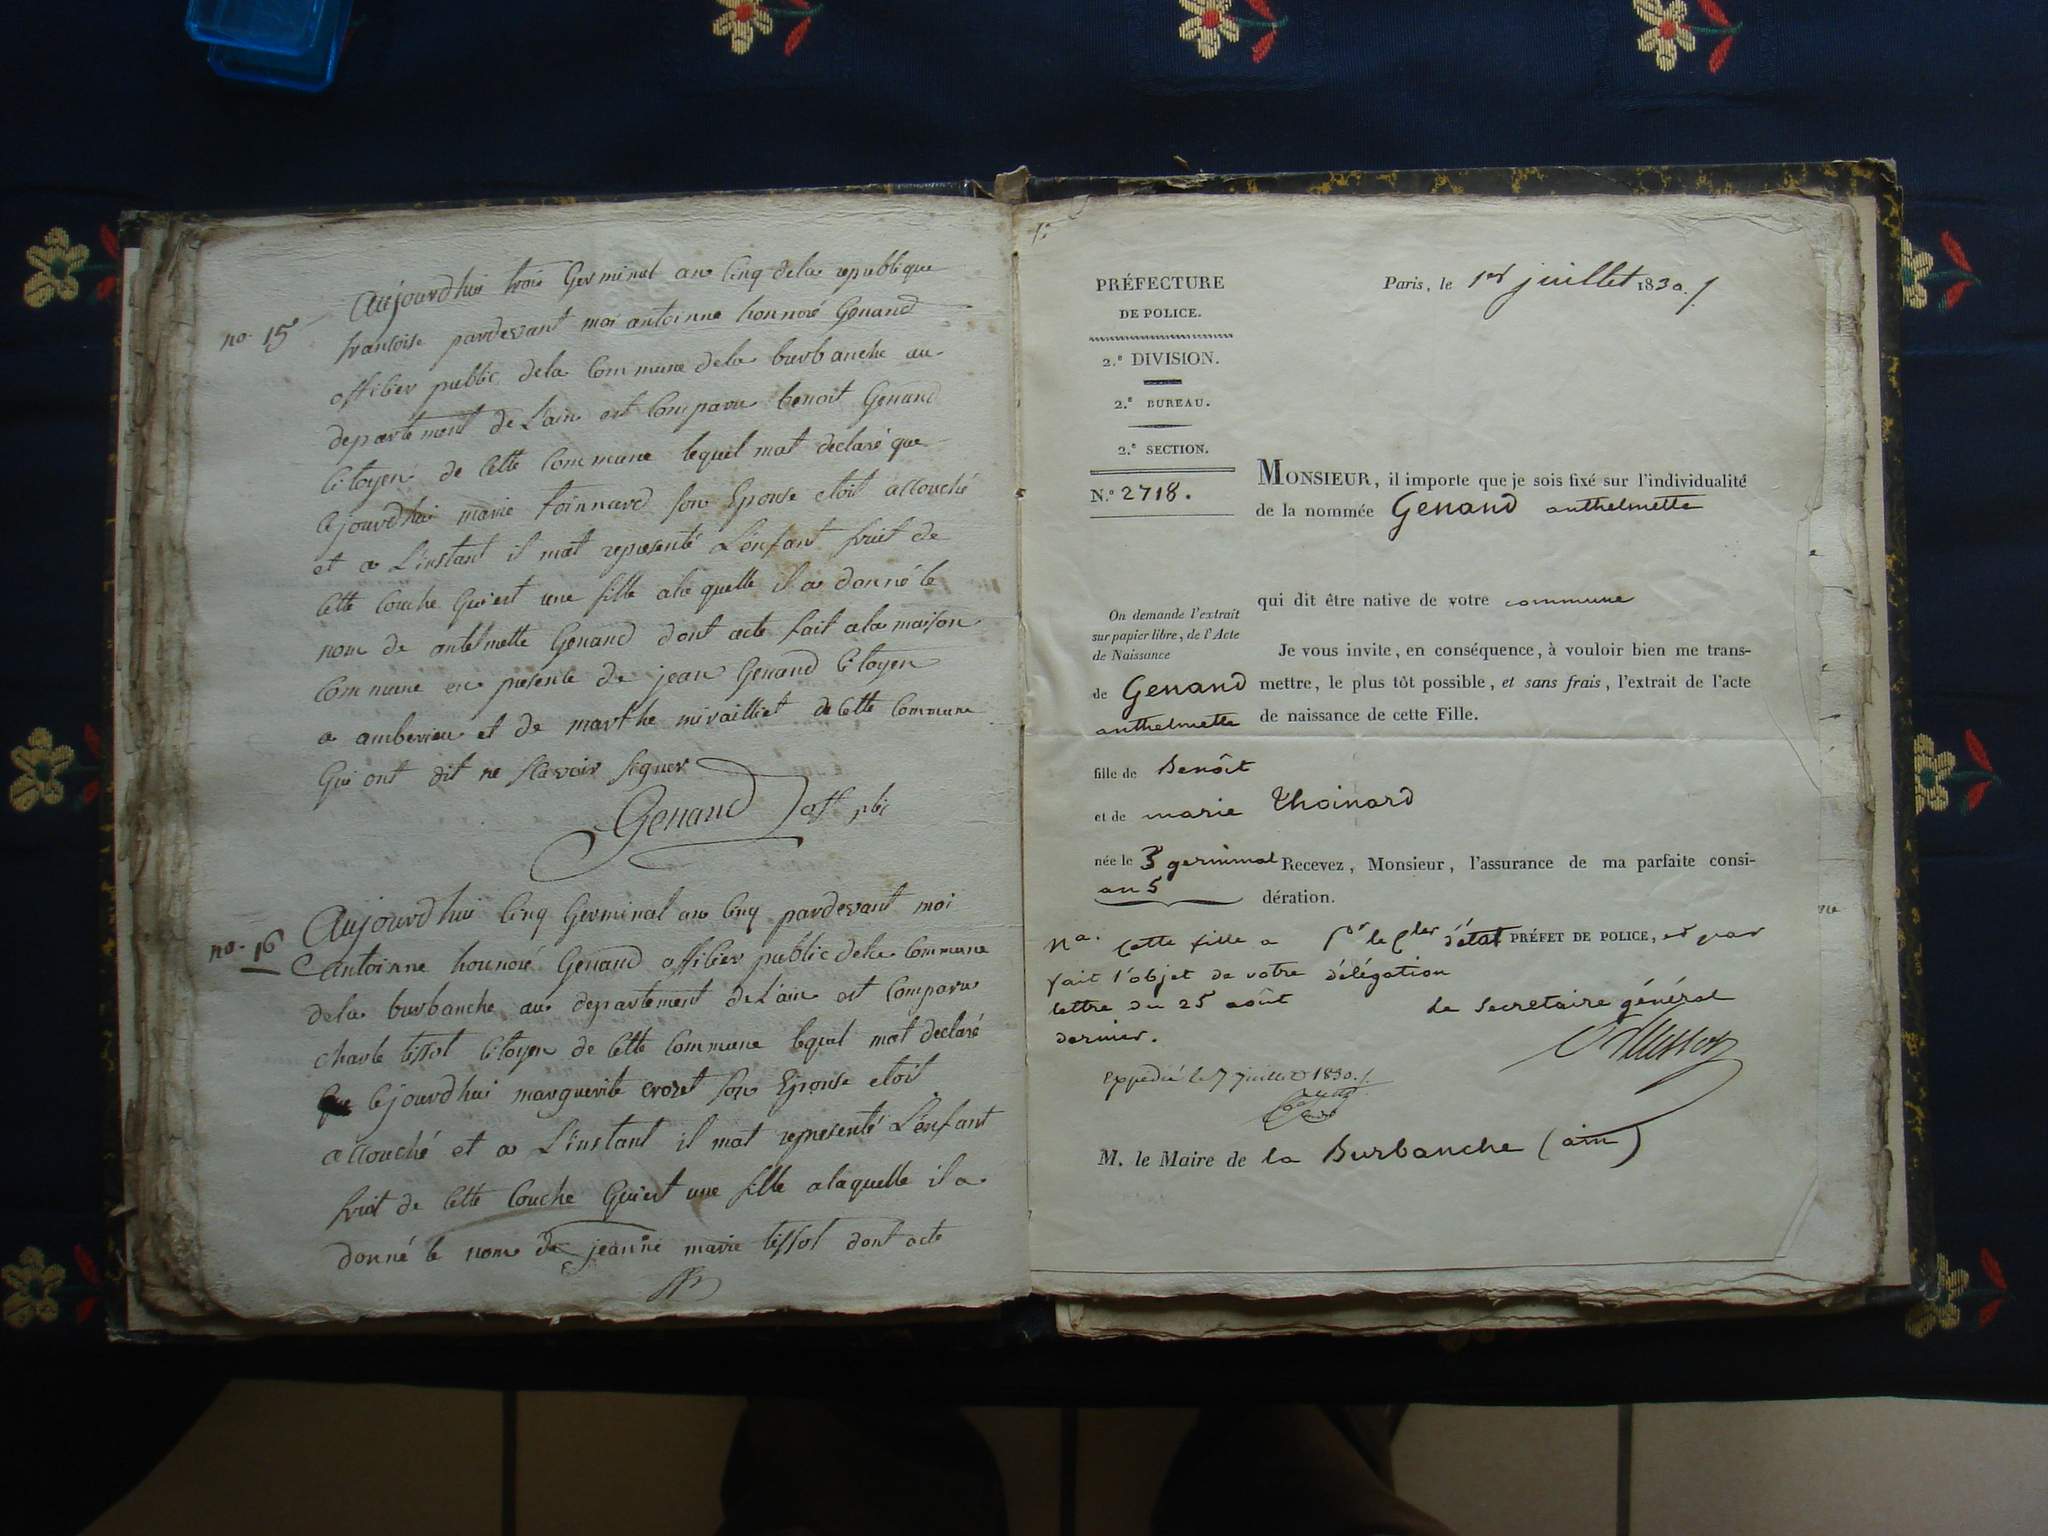 no. 15
Aujourdhui trois Germinal an Cinq dela republique
francoise pardevant moi antoinne honnoré Genand
officier public dela Commune dela burbanche au
departement de L'ain est Comparu benoit Genand
Citoyen de Cette Commune lequel mat declaré que
Cejourdhui marie toinnard son Epouse etoit accouché
et a L'instant il mat representé L'enfant fruit de
Cette Couche Qui est une fille ala quelle il a donné le
nom de antelmette Genand dont acte fait ala maison
Commune en presente de jean Genand Citoyen
a amberieu et de marthe miraillet de Cette Commune
Qui ont dit ne scavoir signer
Genand off pbic
no. 16
Aujourdhui Cinq Germinal an Cinq pardevant moi
Antoinne honnoré Genand officier public dela Commune
dela burbanche au departement de L'ain est Comparu
Charle tissot Citoyen de Cette Commune lequel mat declaré
que Cejourdhui marguerite crozet son Epouse etoit
accouché et a L'instant il mat representé L'enfant
fruit de Cette Couche Qui est une fille alaquelle il a
donné le nom de jeanne marie tissot dont acte
PRÉFECTURE
DE POLICE.
2.e DIVISION.
2.e BUREAU.
2.e SECTION.
N.o 2718.
Paris, le 1er juillet 1830.
MONSIEUR, il importe que je sois fixé sur l'individualité
de la nommée Genand anthelmette
qui dit être native de votre commune
Je vous invite, en conséquence, à vouloir bien me trans-
mettre, le plus tôt possible, et sans frais, l'extrait de l'acte
de naissance de cette Fille.
On demande l'extrait
sur papier libre, de l'Acte
de Naissance
de Genand
anthelmette
fille de Benoît
et de marie Thoinard
née le 3 germinal
an 5
Recevez, Monsieur, l'assurance de ma parfaite consi-
dération.
Na. Cette fille a
fait l'objet de votre
lettre du 25 août
dernier.
Pr le Cler d'état PRÉFET DE POLICE, et par
délégation
Le Secretaire général
Expédié le 7 juillet 1830.
M. le Maire de la Burbanche (ain)